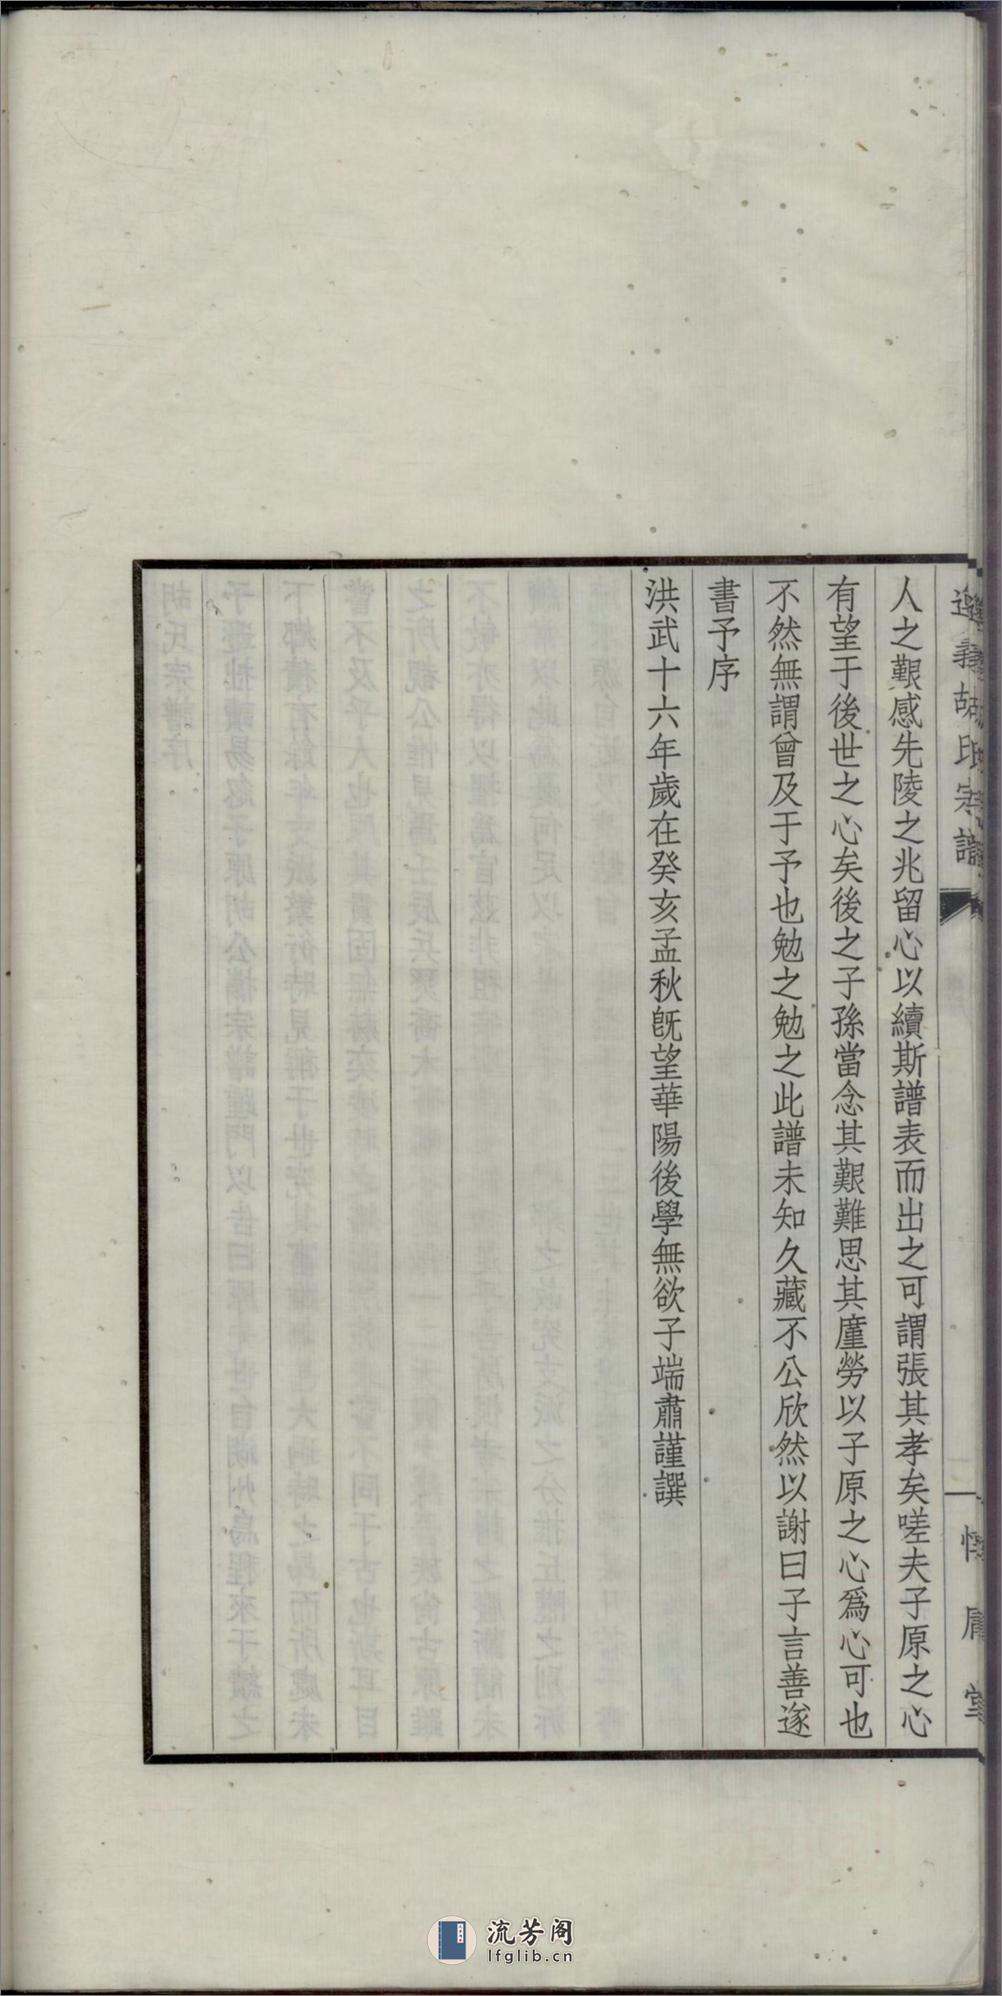 遵義胡氏宗譜
一
人之艱感先陵之兆留心以續斯譜表而出之可謂張其孝矣嗟夫子原之心
有望于後世之心矣後之子孫當念其艱難思其廑勞以子原之心爲心可也
不然無謂曾及于予也勉之勉之此譜未知久藏不公欣然以謝曰子言善遂
書予序
洪武十六年歲在癸亥孟秋旣望華陽後學無欲子端肅謹譔
流芳阁
lfglib.cn